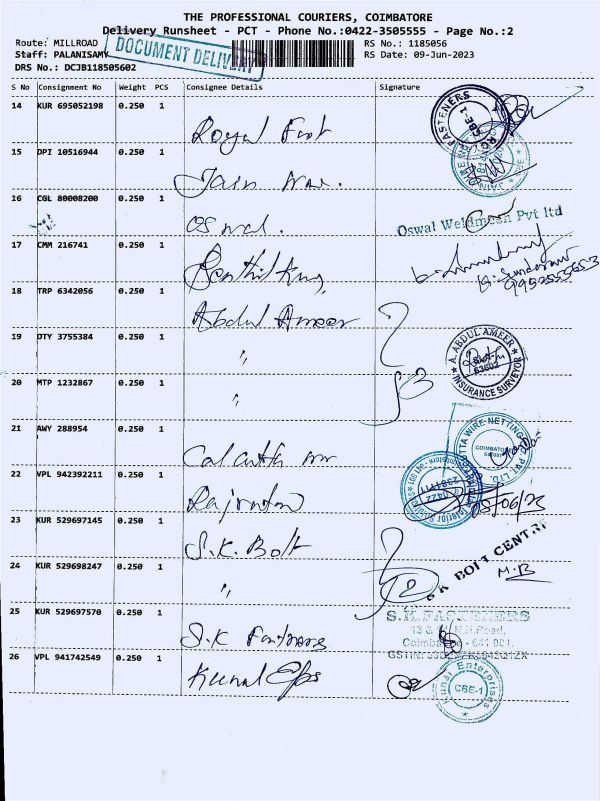 THE PROFESSIONAL COURIERS, COIMBATORE
Delivery Runsheet - PCT - Phone No.:0422-3505555 - Page No.:2
Route: MILLROAD RS No.: 1185056
Staff: PALANISAMY RS Date: 09-Jun-2023
DOCUMENT DELIVERY
DRS No.: DCJB118505602
S No Consignment No Weight PCS Consignee Details Signature
14 KUR 695052198 0.250 1 Royal
FASTENERS CBE-1
15 DPI 10516944 0.250 1 Jain
16 CGL 80008200 0.250 1 Oswal.
Oswal Weldmesh Pvt ltd
17 CMM 216741 0.250 1 Senthil
18 TRP 6342056 0.250 1 Abdul Ameer
19 DTY 3755384 0.250 1 "
A. ABDUL AMEER INSURANCE SURVEYOR
20 MTP 1232867 0.250 1 "
3
21 AWY 288954 0.250 1 Calcutta
WIRE-NETTING PVT. LTD. COIMBATORE
22 VPL 942392211 0.250 1
23 KUR 529697145 0.250 1 S.K. Bolt
BOLT CENTRE
24 KUR 529698247 0.250 1 "
M.B
25 KUR 529697570 0.250 1 S.K
S.K.FASTENERS
Road,
641 001.
26 VPL 941742549 0.250 1 Kunal
Kunal Enterprises CBE-1